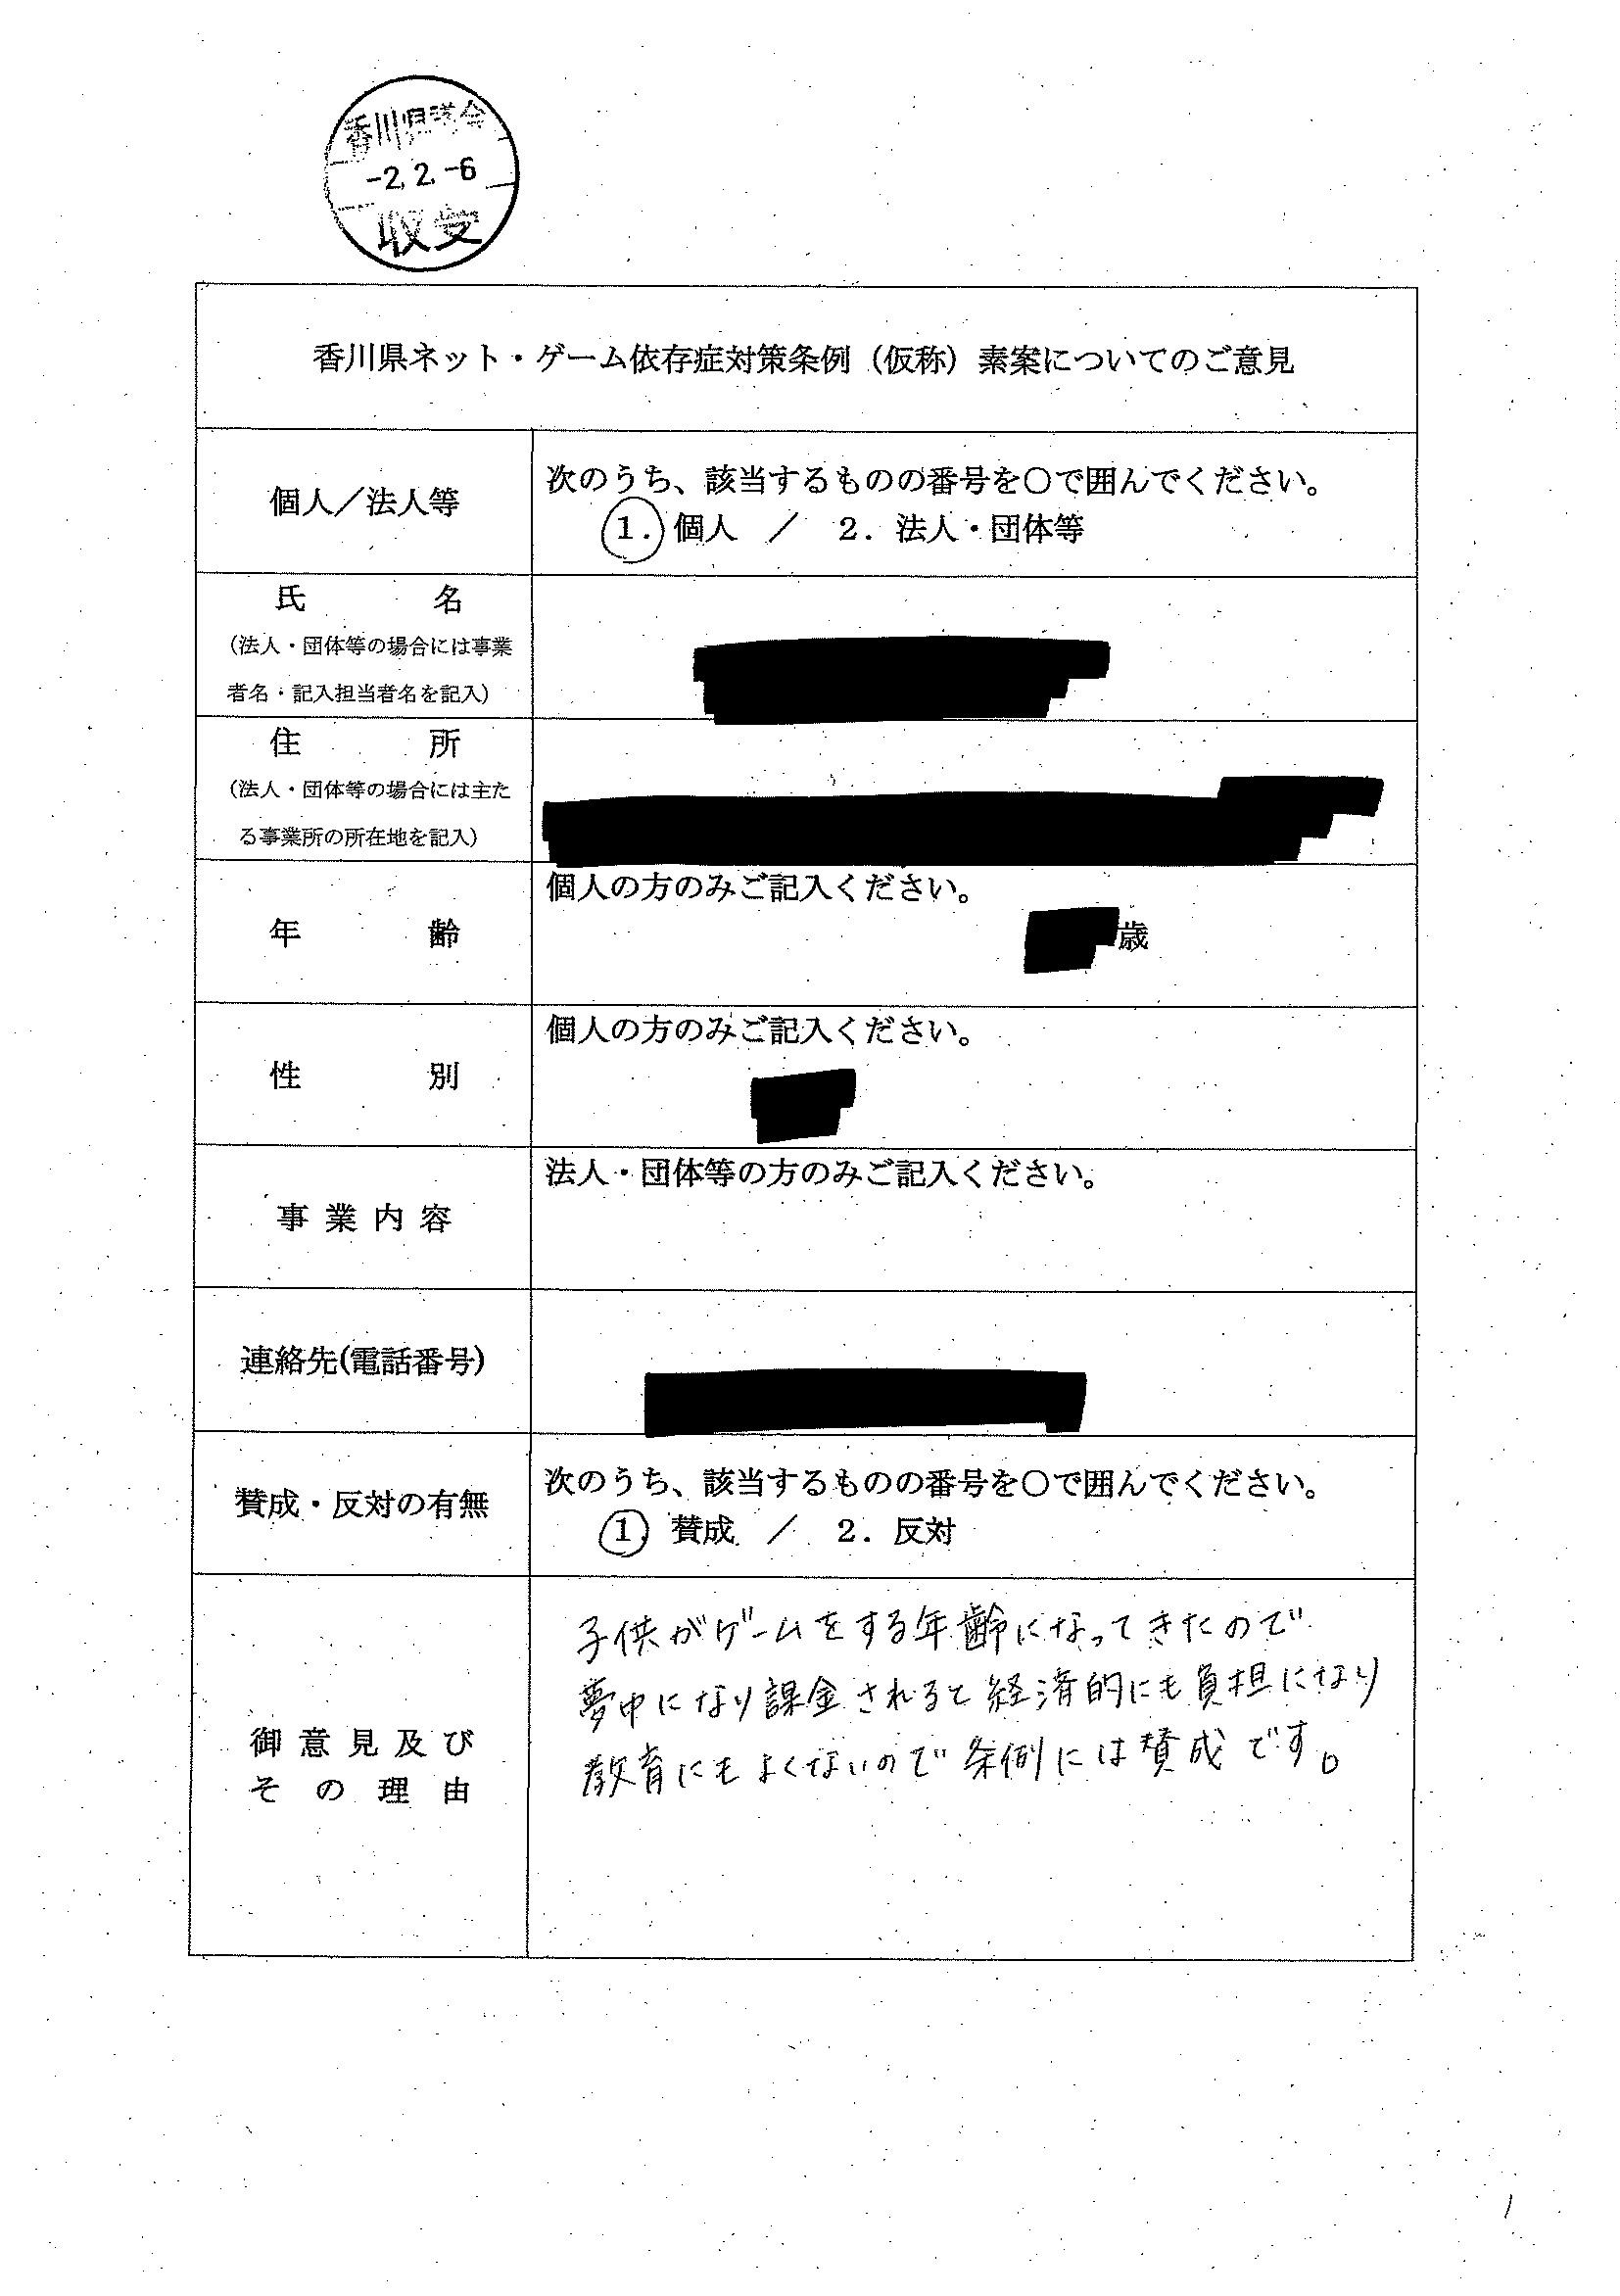 香川県議会
-2.2.-6
収受
香川県ネット・ゲーム依存症対策条例（仮称）素案についてのご意見
個人／法人等
次のうち、該当するものの番号を○で囲んでください。
1. 個人 ／ 2. 法人・団体等
氏名
（法人・団体等の場合には事業
者名・記入担当者名を記入）
住所
（法人・団体等の場合には主た
る事業所の所在地を記入）
年齢
個人の方のみご記入ください。
歳
性別
個人の方のみご記入ください。
事業内容
法人・団体等の方のみご記入ください。
連絡先(電話番号)
賛成・反対の有無
次のうち、該当するものの番号を○で囲んでください。
1 賛成 ／ 2. 反対
御意見及び
その理由
子供がゲームをする年齢になってきたので
夢中になり課金されると経済的にも負担になり
教育にもよくないので条例には賛成です。
1